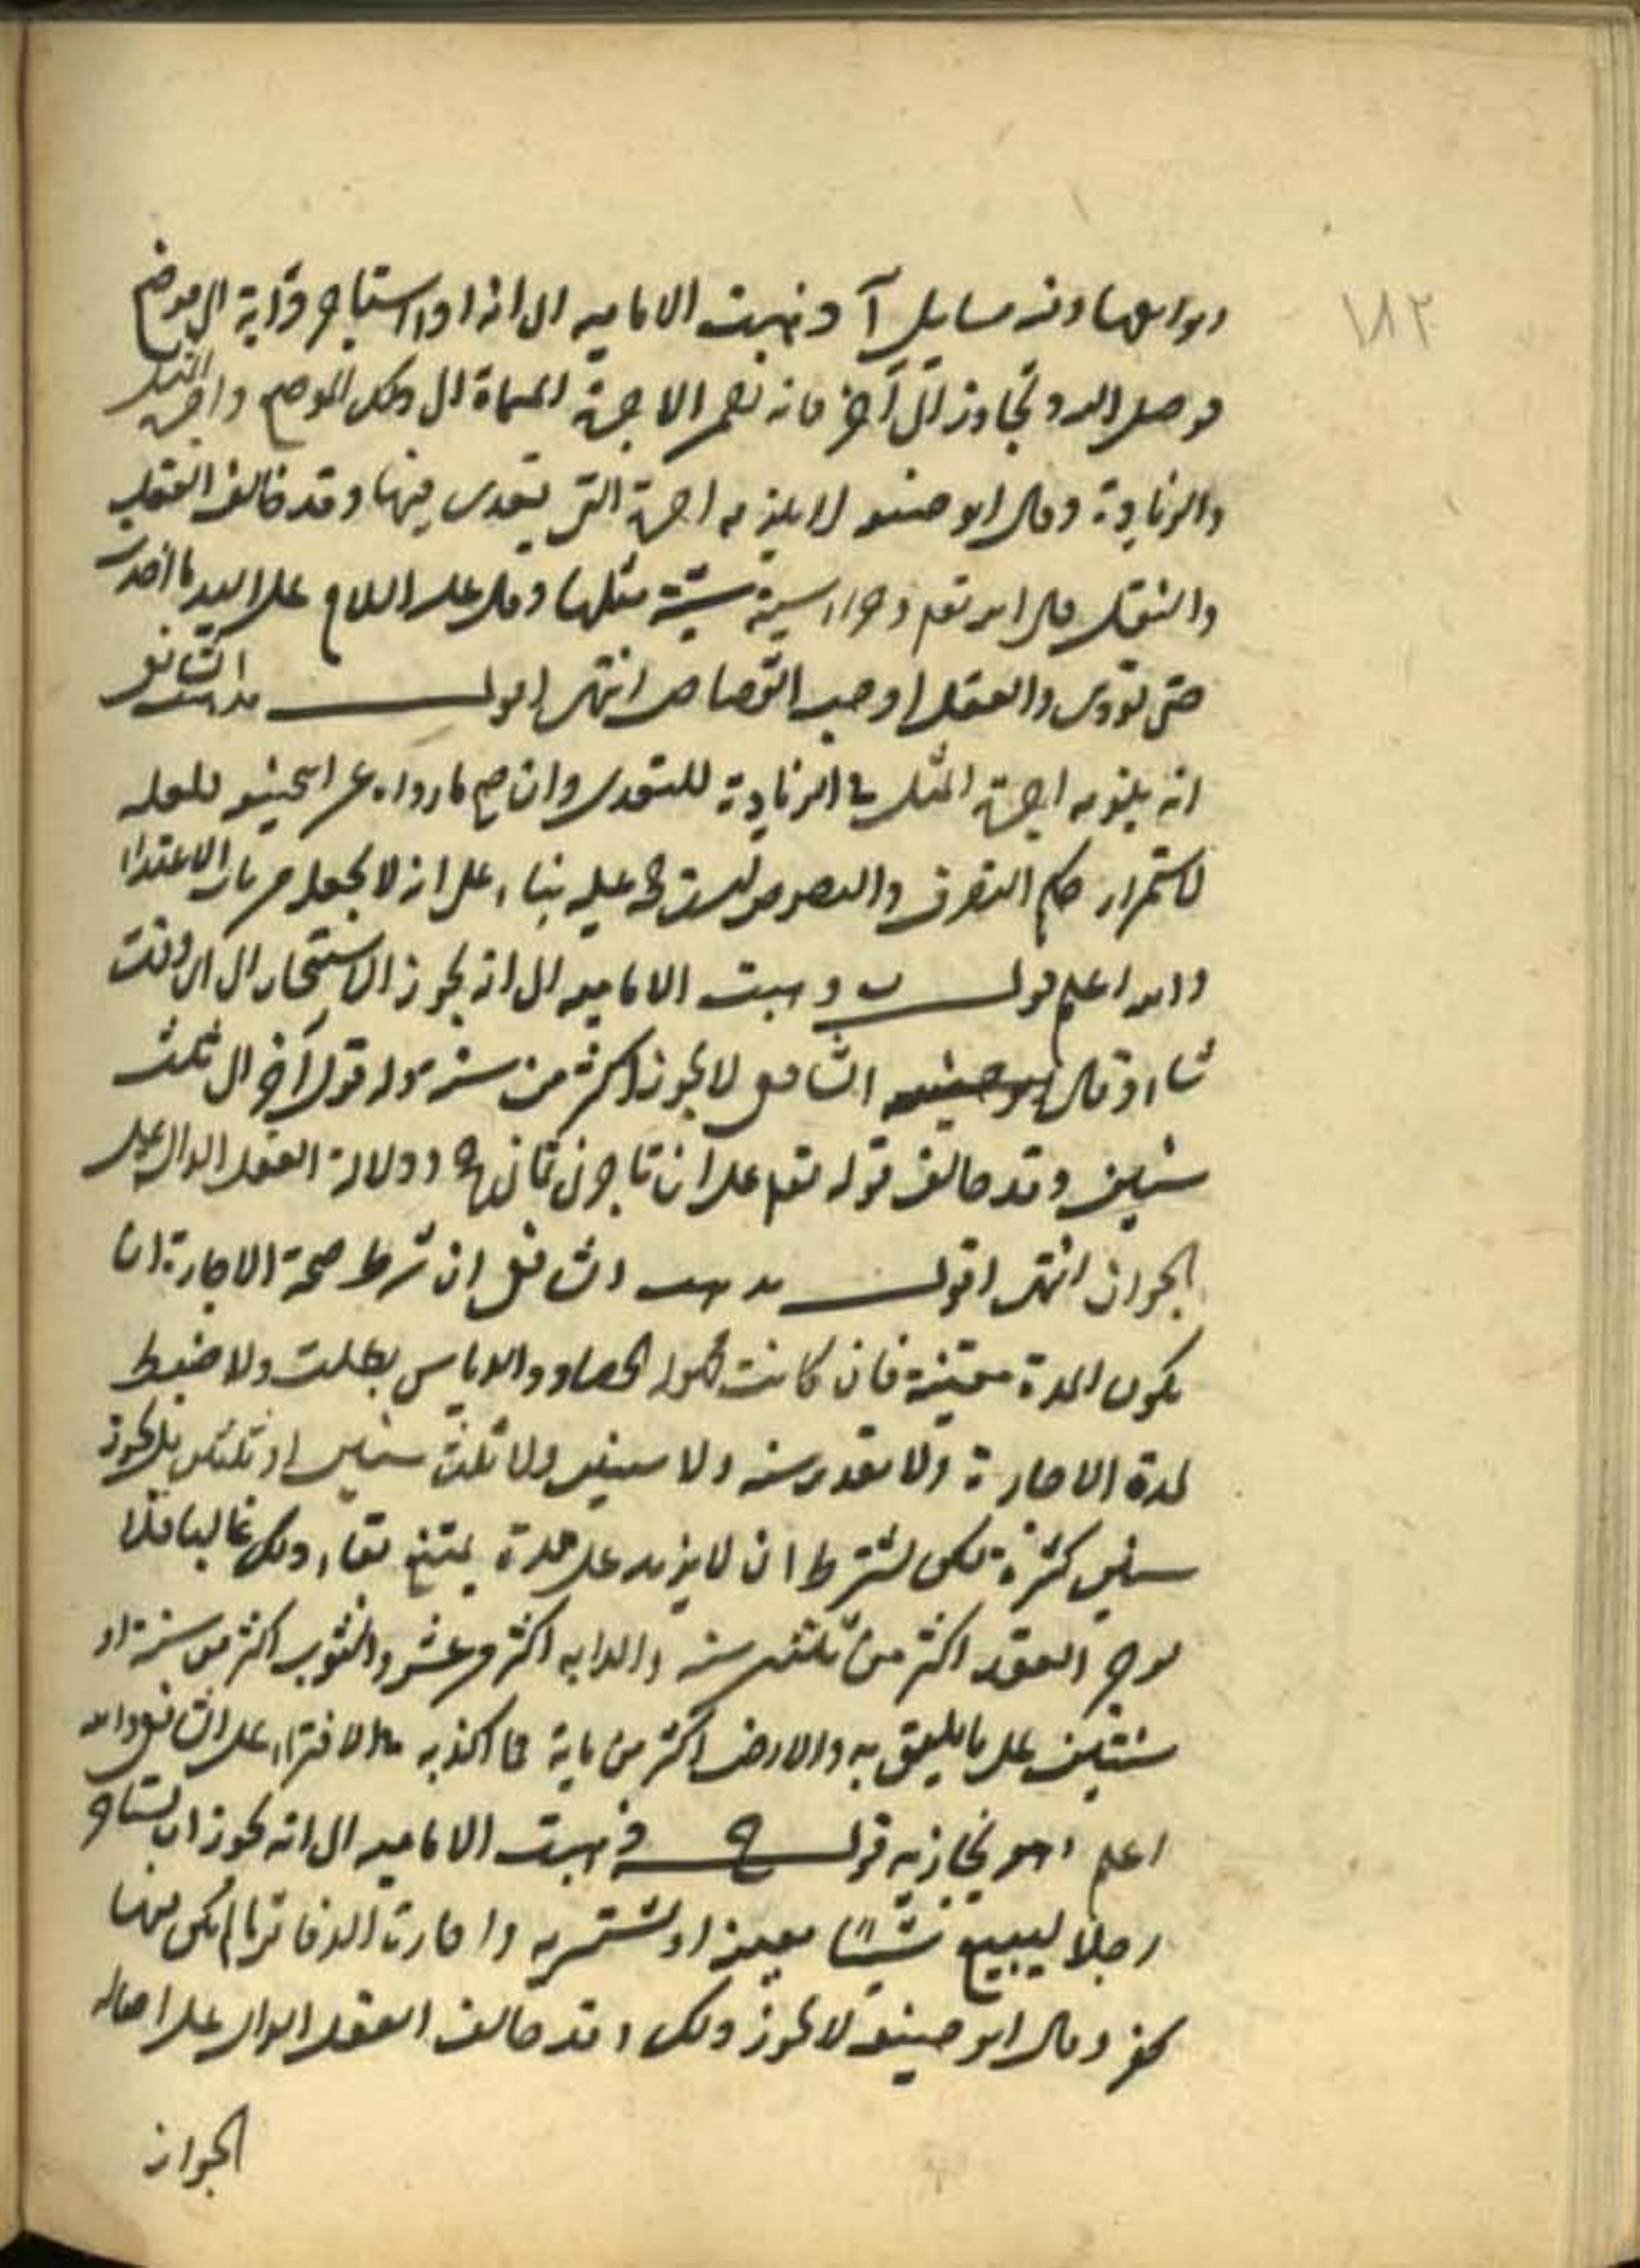 ١٨٢
وتوابعها وفيه مسايل آ ذهبت الاماميه الى انه اذا استاجر دابة الى موضع
فوصل اليه وتجاوز الى آخر فانه يضمن الاجرة المسماة الى ذلك الموضع واجرة المثل
والزيادة وقال ابو حنيفه لا يلزمه اجرة التي يتعدى فيها وقد خالف العقل
والنقل قال الله تعلى وجزاء سيئة سيئة مثلها وقال عليه السلام على اليد ما اخذت
حتى تؤدى والعقل اوجب القصاص انتهى اقول مذهب الشافعى
انه يلزمه اجرة المثل في الزيادة للتعدى وان صح ما رواه عن ابى حنيفه فلعله
لاستمرار حكم التصرف والنصوص ليست حجة عليه بناء على انه لا يجعله من باب الاعتداء
والله اعلم قوله ب ذهبت الاماميه الى انه يجوز الاستيجار الى اى وقت
شاء وقال الشافعى لا يجوز اكثر من سنة وله قول آخر الى ثلث
سنين وقد خالف قوله تعلى على ان تاجرنى ثمانى حجج ودلالة العقل الدال على
الجواز انتهى اقول مذهب الشافعى ان شرط صحة الاجارة ان
يكون المدة معينة فان كانت مجهولة كالحصاد والدياس بطلت ولا ضبط
لمدة الاجارة ولا تقدر بسنة ولا سنتين ولا ثلث سنين او ثلثين بل يجوز
سنين كثيرة لكن يشترط ان لا يزيد على مدة يمتنع بقاء ذلك غالبا فلا
يوجر العبد اكثر من ثلثين سنة والدابه اكثر من عشر والثوب اكثر من سنة او
سنتين على ما يليق به والارض اكثر من ماية فما اكذبه في الافتراء على الشافعى والله
اعلم وهو يجازيه قوله ج ذهبت الاماميه الى انه يجوز ان يستاجر
رجلا ليبيع شيئا بعينه او يشتريه واجارة الدفاتر ما لم يكن فيها
كفر وقال ابو حنيفه لا يجوز ذلك وقد خالف العقل الدال على اصالة
الجواز